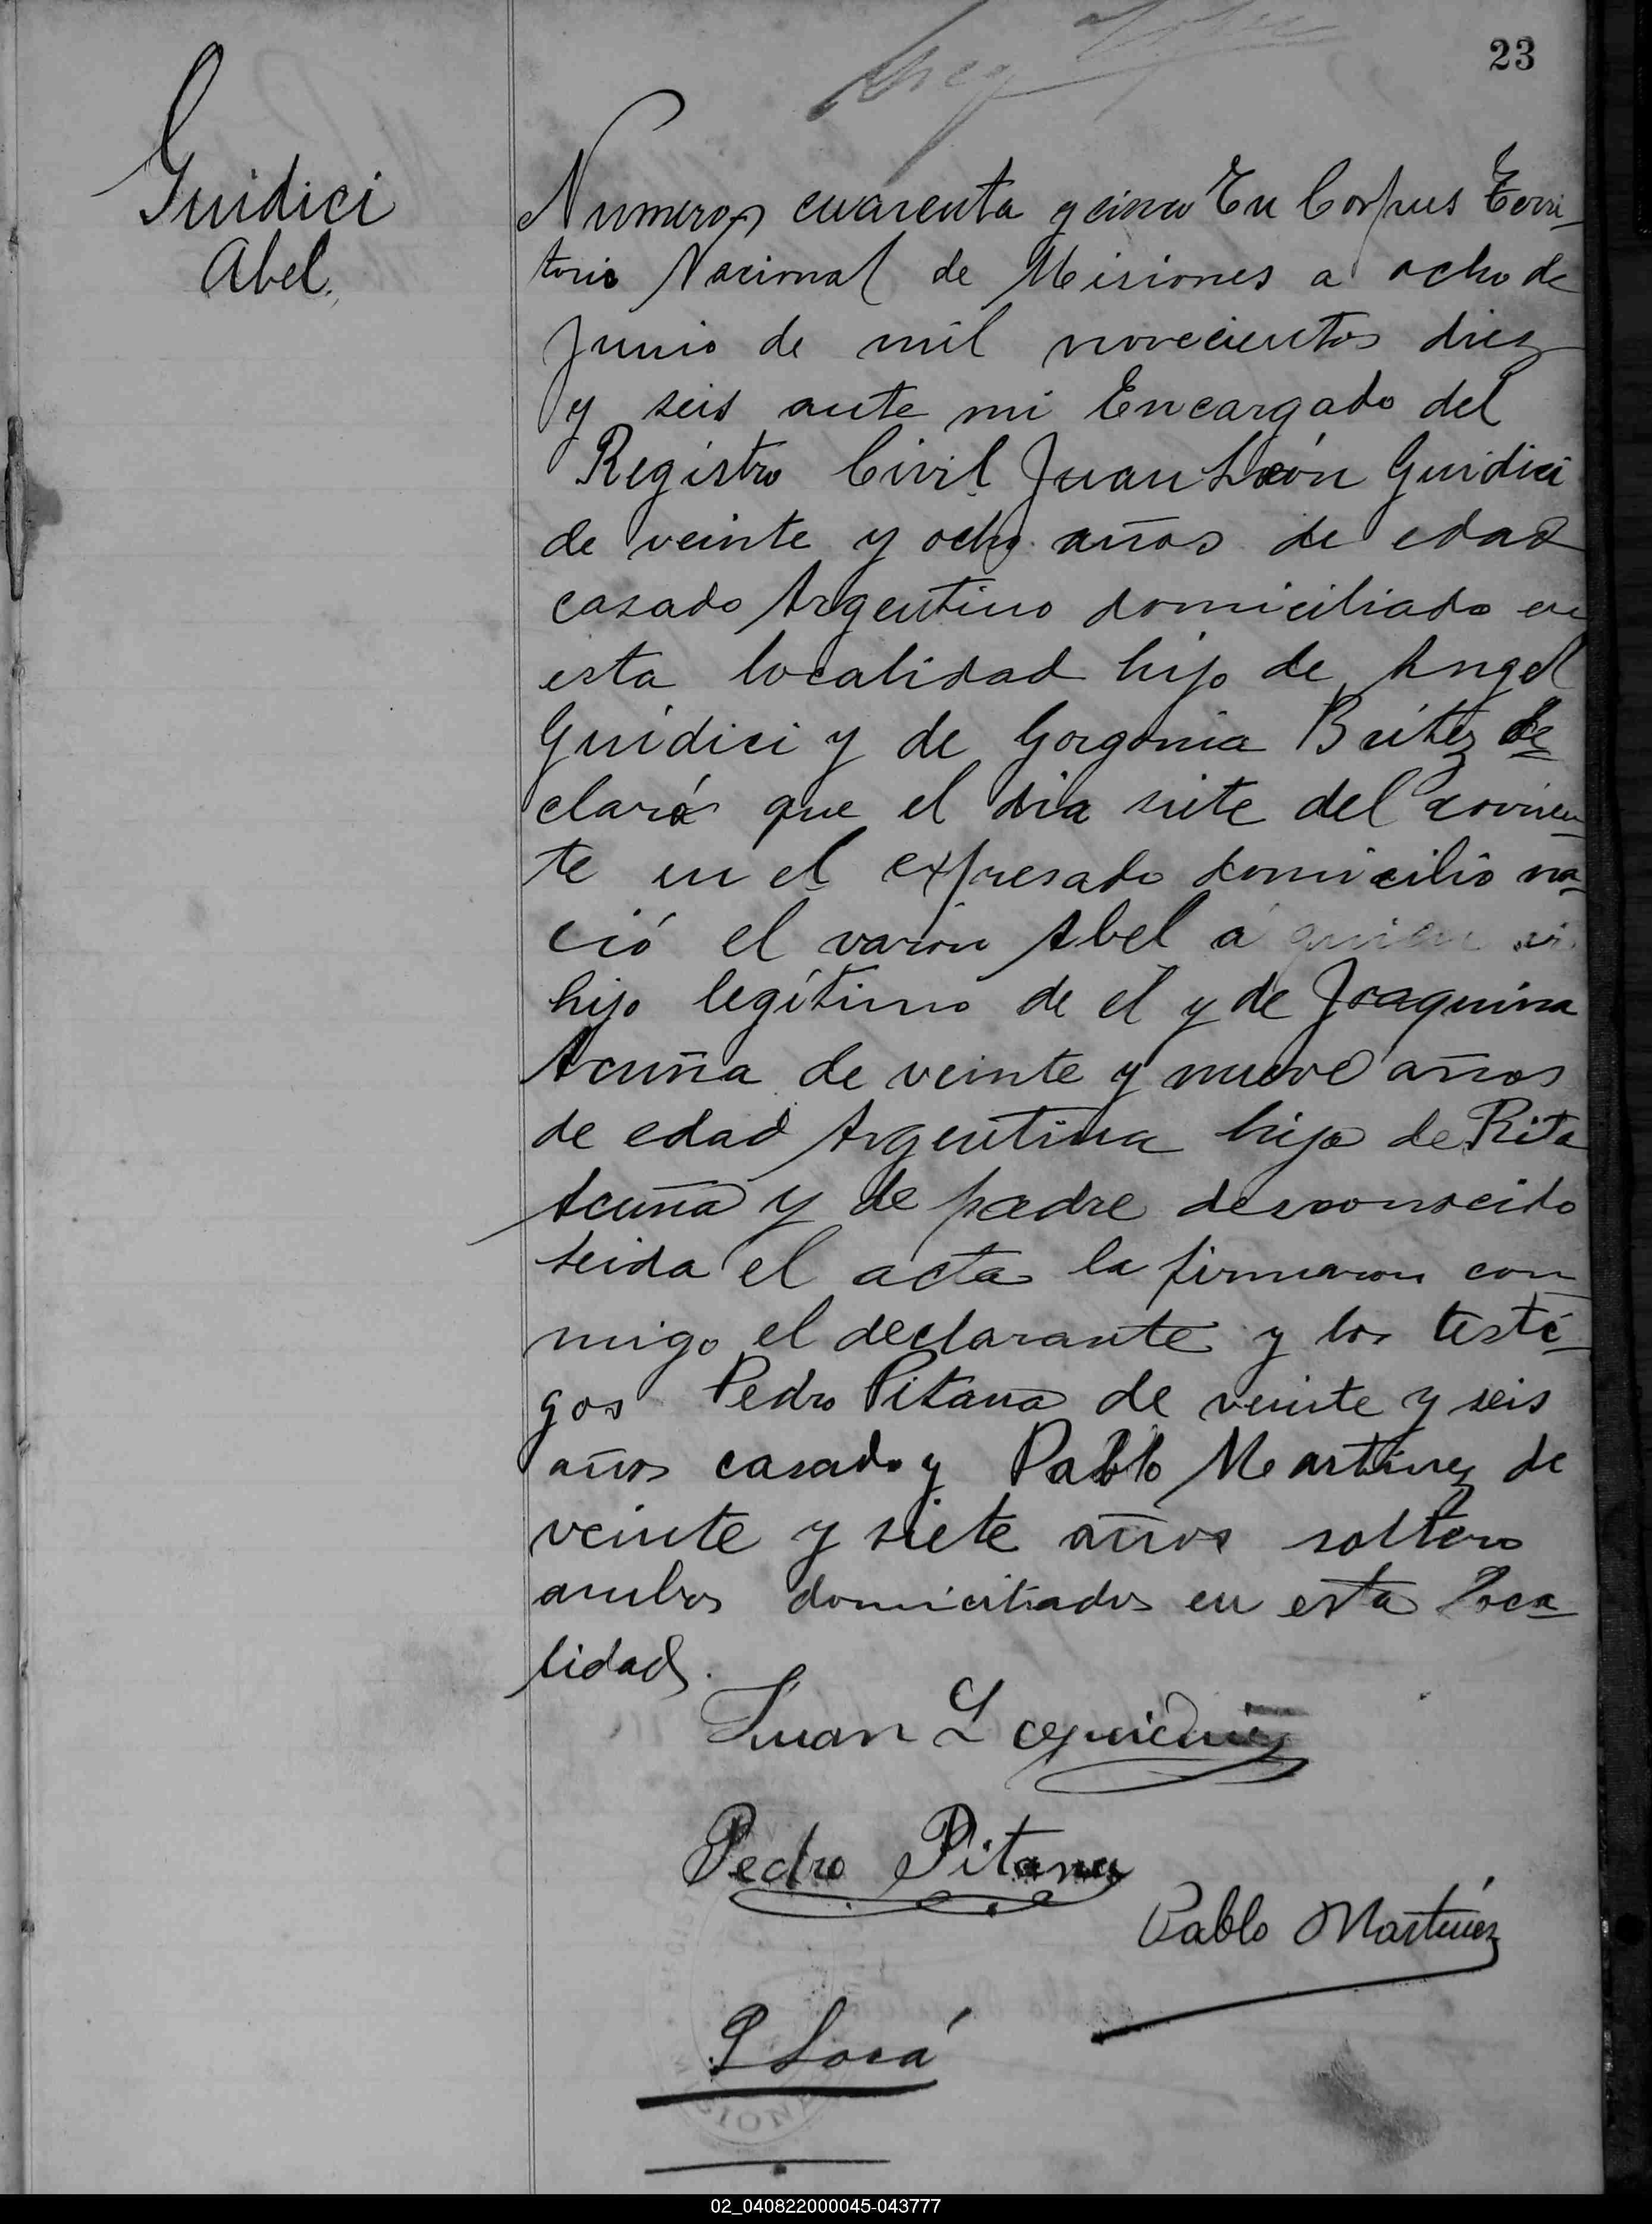 23
Guidici
Abel.
Numero cuarenta y cinco En Corpus Terri-
torio Nacional de Misiones a ocho de
Junio de mil novecientos diez
y seis ante mi Encargado del
Registro Civil Juan León Guidici
de veinte y ocho años de edad
casado Argentino domiciliado en
esta localidad hijo de Angel
Guidici y de Gorgonia Britez de
claró que el dia siete del corrien-
te en el expresado domicilio na-
ció el varon Abel á quien vi
hijo legítimo de el y de Joaquina
Acuña de veinte y nueve años
de edad Argentina hija de Rita
Acuña y de padre desconocido
Leida el acta la firmaron con
migo el declarante y los testi-
gos Pedro Pitana de veinte y seis
años casado y Pablo Martinez de
veinte y siete años soltero
ambos domiciliados en esta loca-
lidad.
Juan L Guidici
Pedro Pitana
Pablo Martínez
02_040822000045-043777